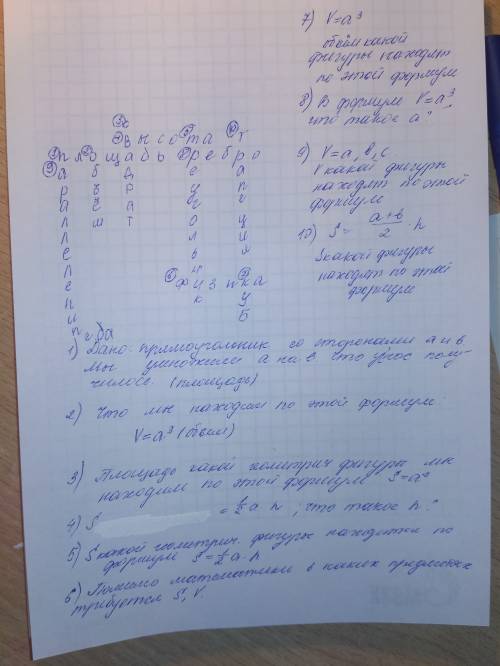 7) V=a³
объём какой
фигуры находят
по этой формуле
8) В формуле V=a³,
что такое a?
9) V=a,b,c
V какой фигуры
находят по этой
формуле
10) S= a+b/2 · h
S какой фигуры
находят по этой
формуле
высота
площадь
ребро
физика
1) Дано: прямоугольник со сторонами a и b.
Мы умножили a на b. Что у нас полу-
чилось. (площадь)
2) Что мы находим по этой формуле:
V=a³ (объём)
3) Площадь какой геометрич фигуры мы
находим по этой формуле S=a²
4) S = ½ a h, что такое h?
5) S какой геометрич. фигуры находится по
формуле S=½ a·h
6) Помимо математики в каких предметах
требуется S, V.